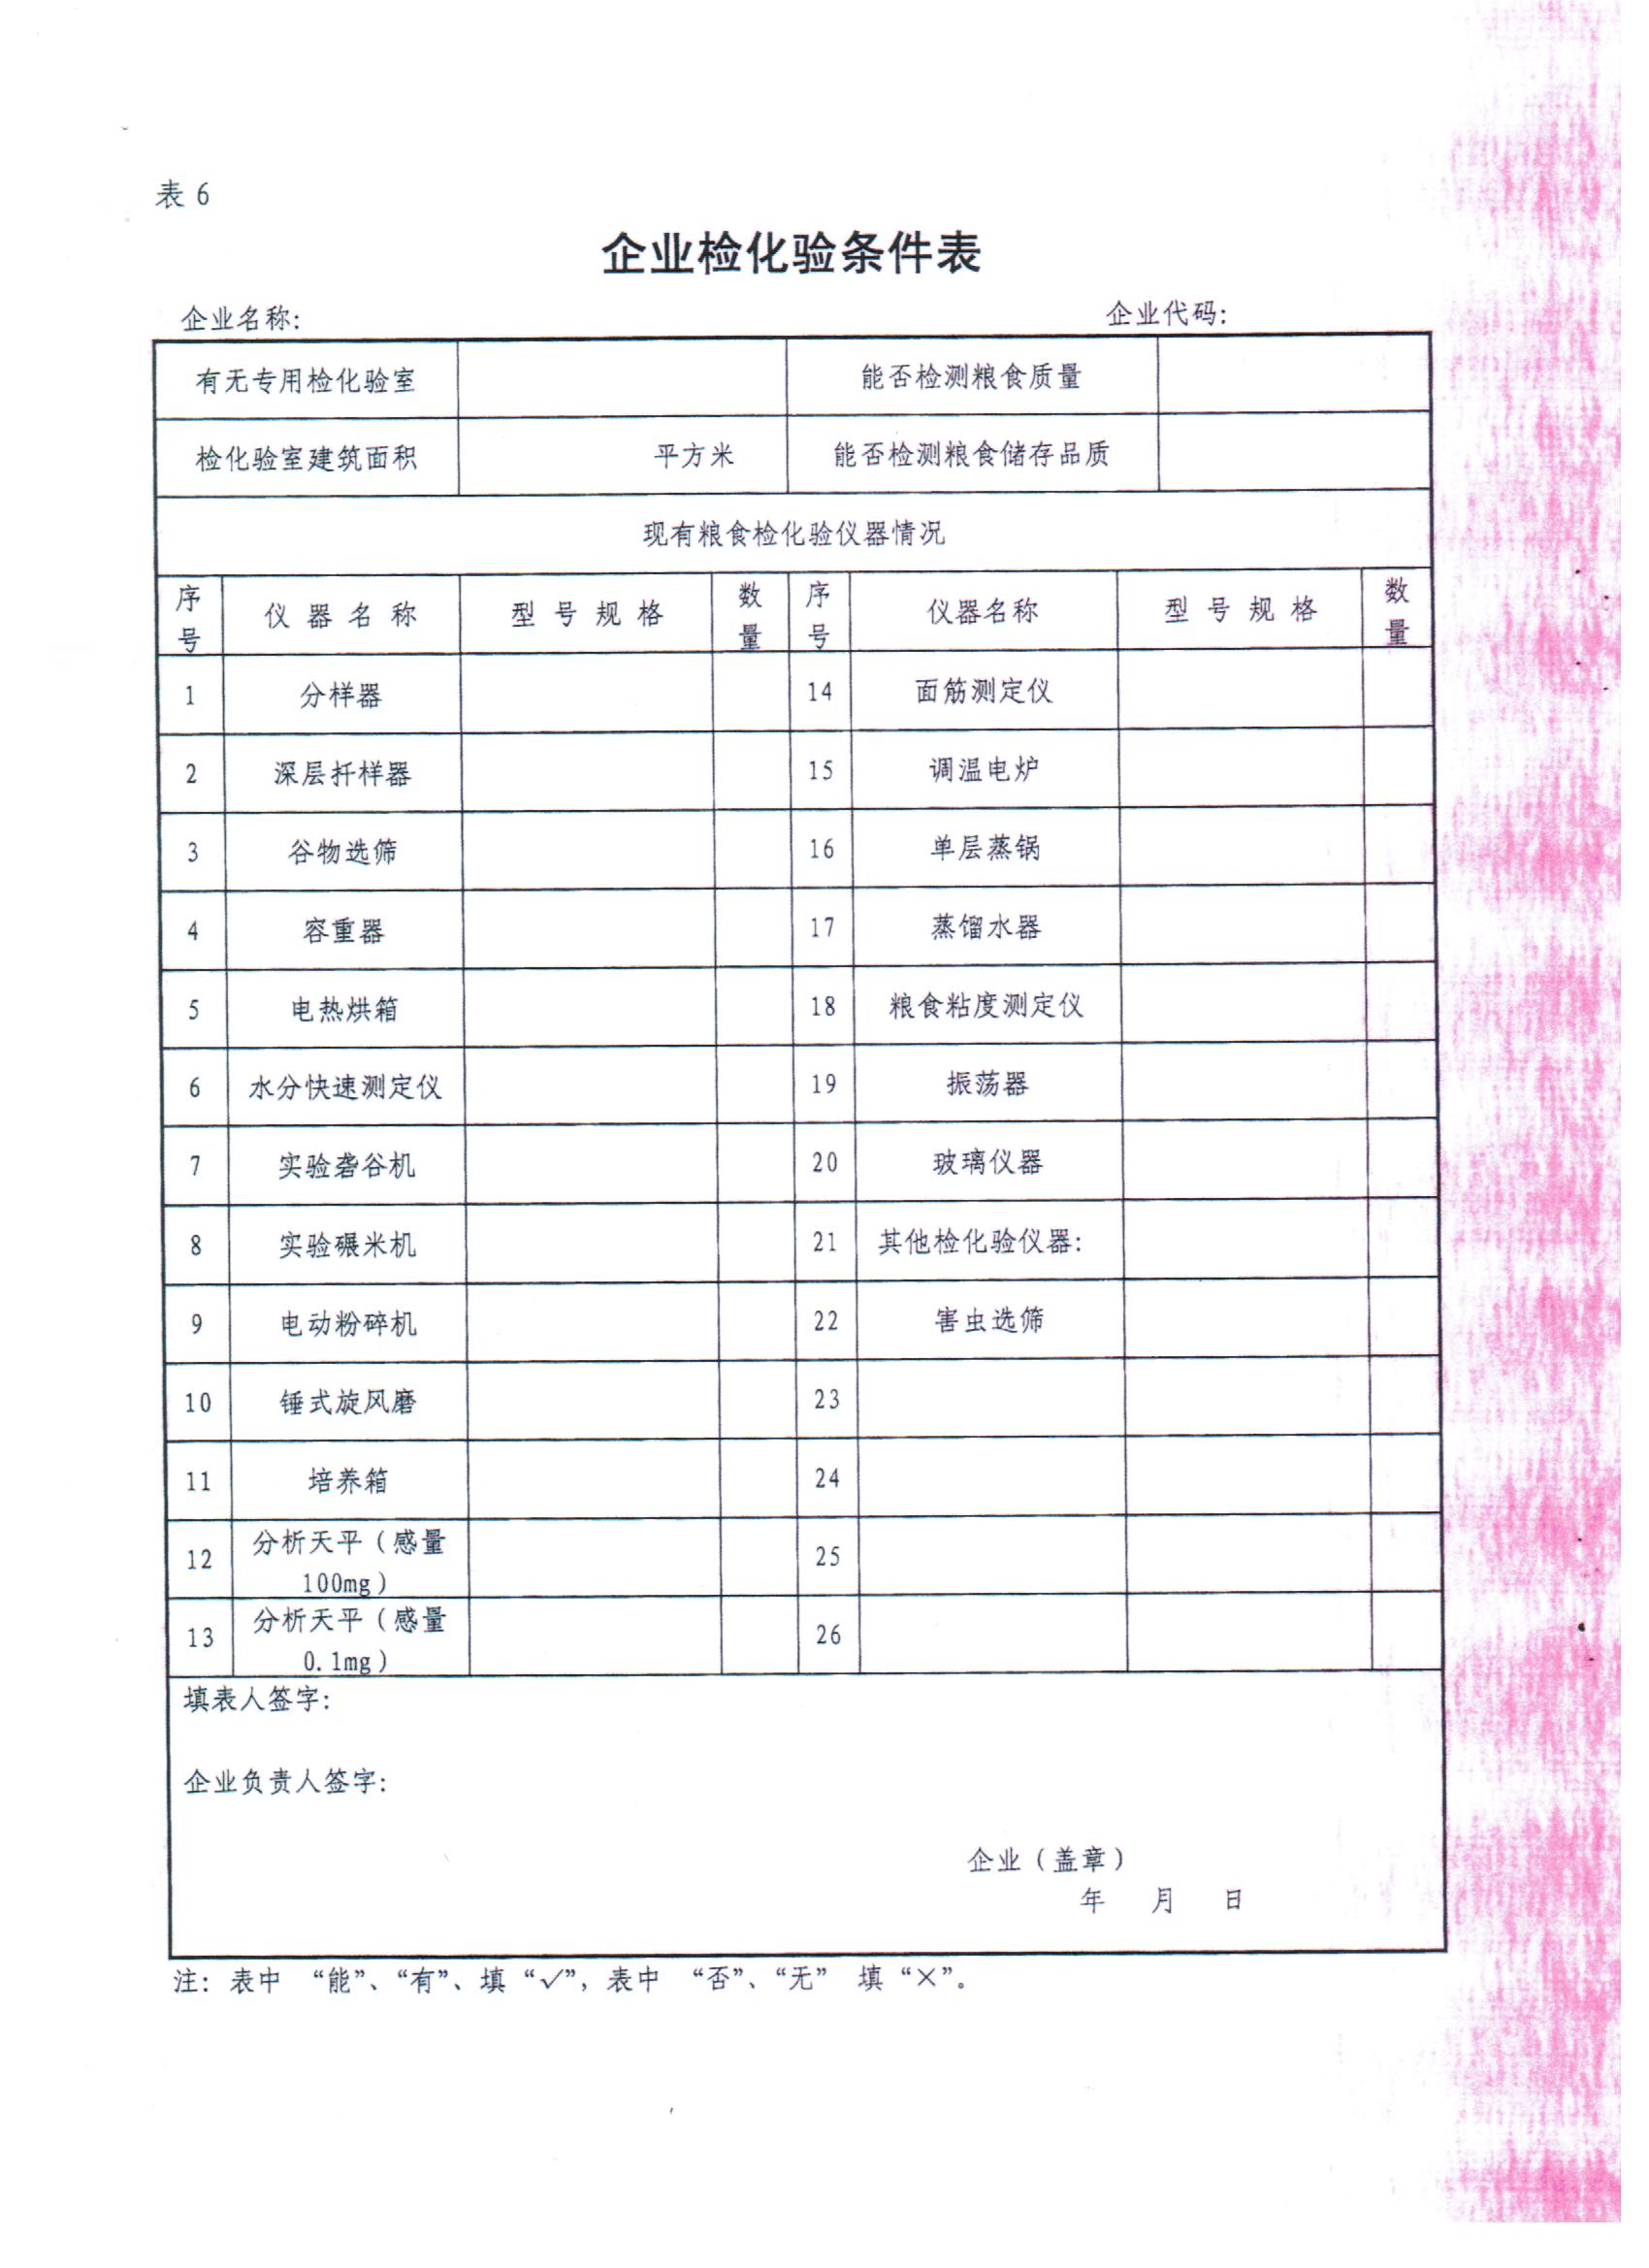 表 6
企业检化验条件表
企业名称: 企业代码:
有无专用检化验室 能否检测粮食质量
检化验室建筑面积 平方米 能否检测粮食储存品质
现有粮食检化验仪器情况
序号 仪 器 名 称 型 号 规 格 数量 序号 仪器名称 型 号 规 格 数量
1 分样器 14 面筋测定仪
2 深层扦样器 15 调温电炉
3 谷物选筛 16 单层蒸锅
4 容重器 17 蒸馏水器
5 电热烘箱 18 粮食粘度测定仪
6 水分快速测定仪 19 振荡器
7 实验砻谷机 20 玻璃仪器
8 实验碾米机 21 其他检化验仪器:
9 电动粉碎机 22 害虫选筛
10 锤式旋风磨 23
11 培养箱 24
12 分析天平（感量100mg） 25
13 分析天平（感量0.1mg） 26
填表人签字:
企业负责人签字:
企业（盖章）
年 月 日
注: 表中 “能”、“有”、填 “√”, 表中 “否”、“无” 填 “×”。